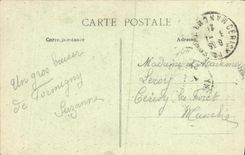 CARTE POSTALE
Correspondance
Adresse
Un gros baiser
de Formigny
Suzanne
Madame et Monsieur
Leroy
Cerisy la Forêt
Manche